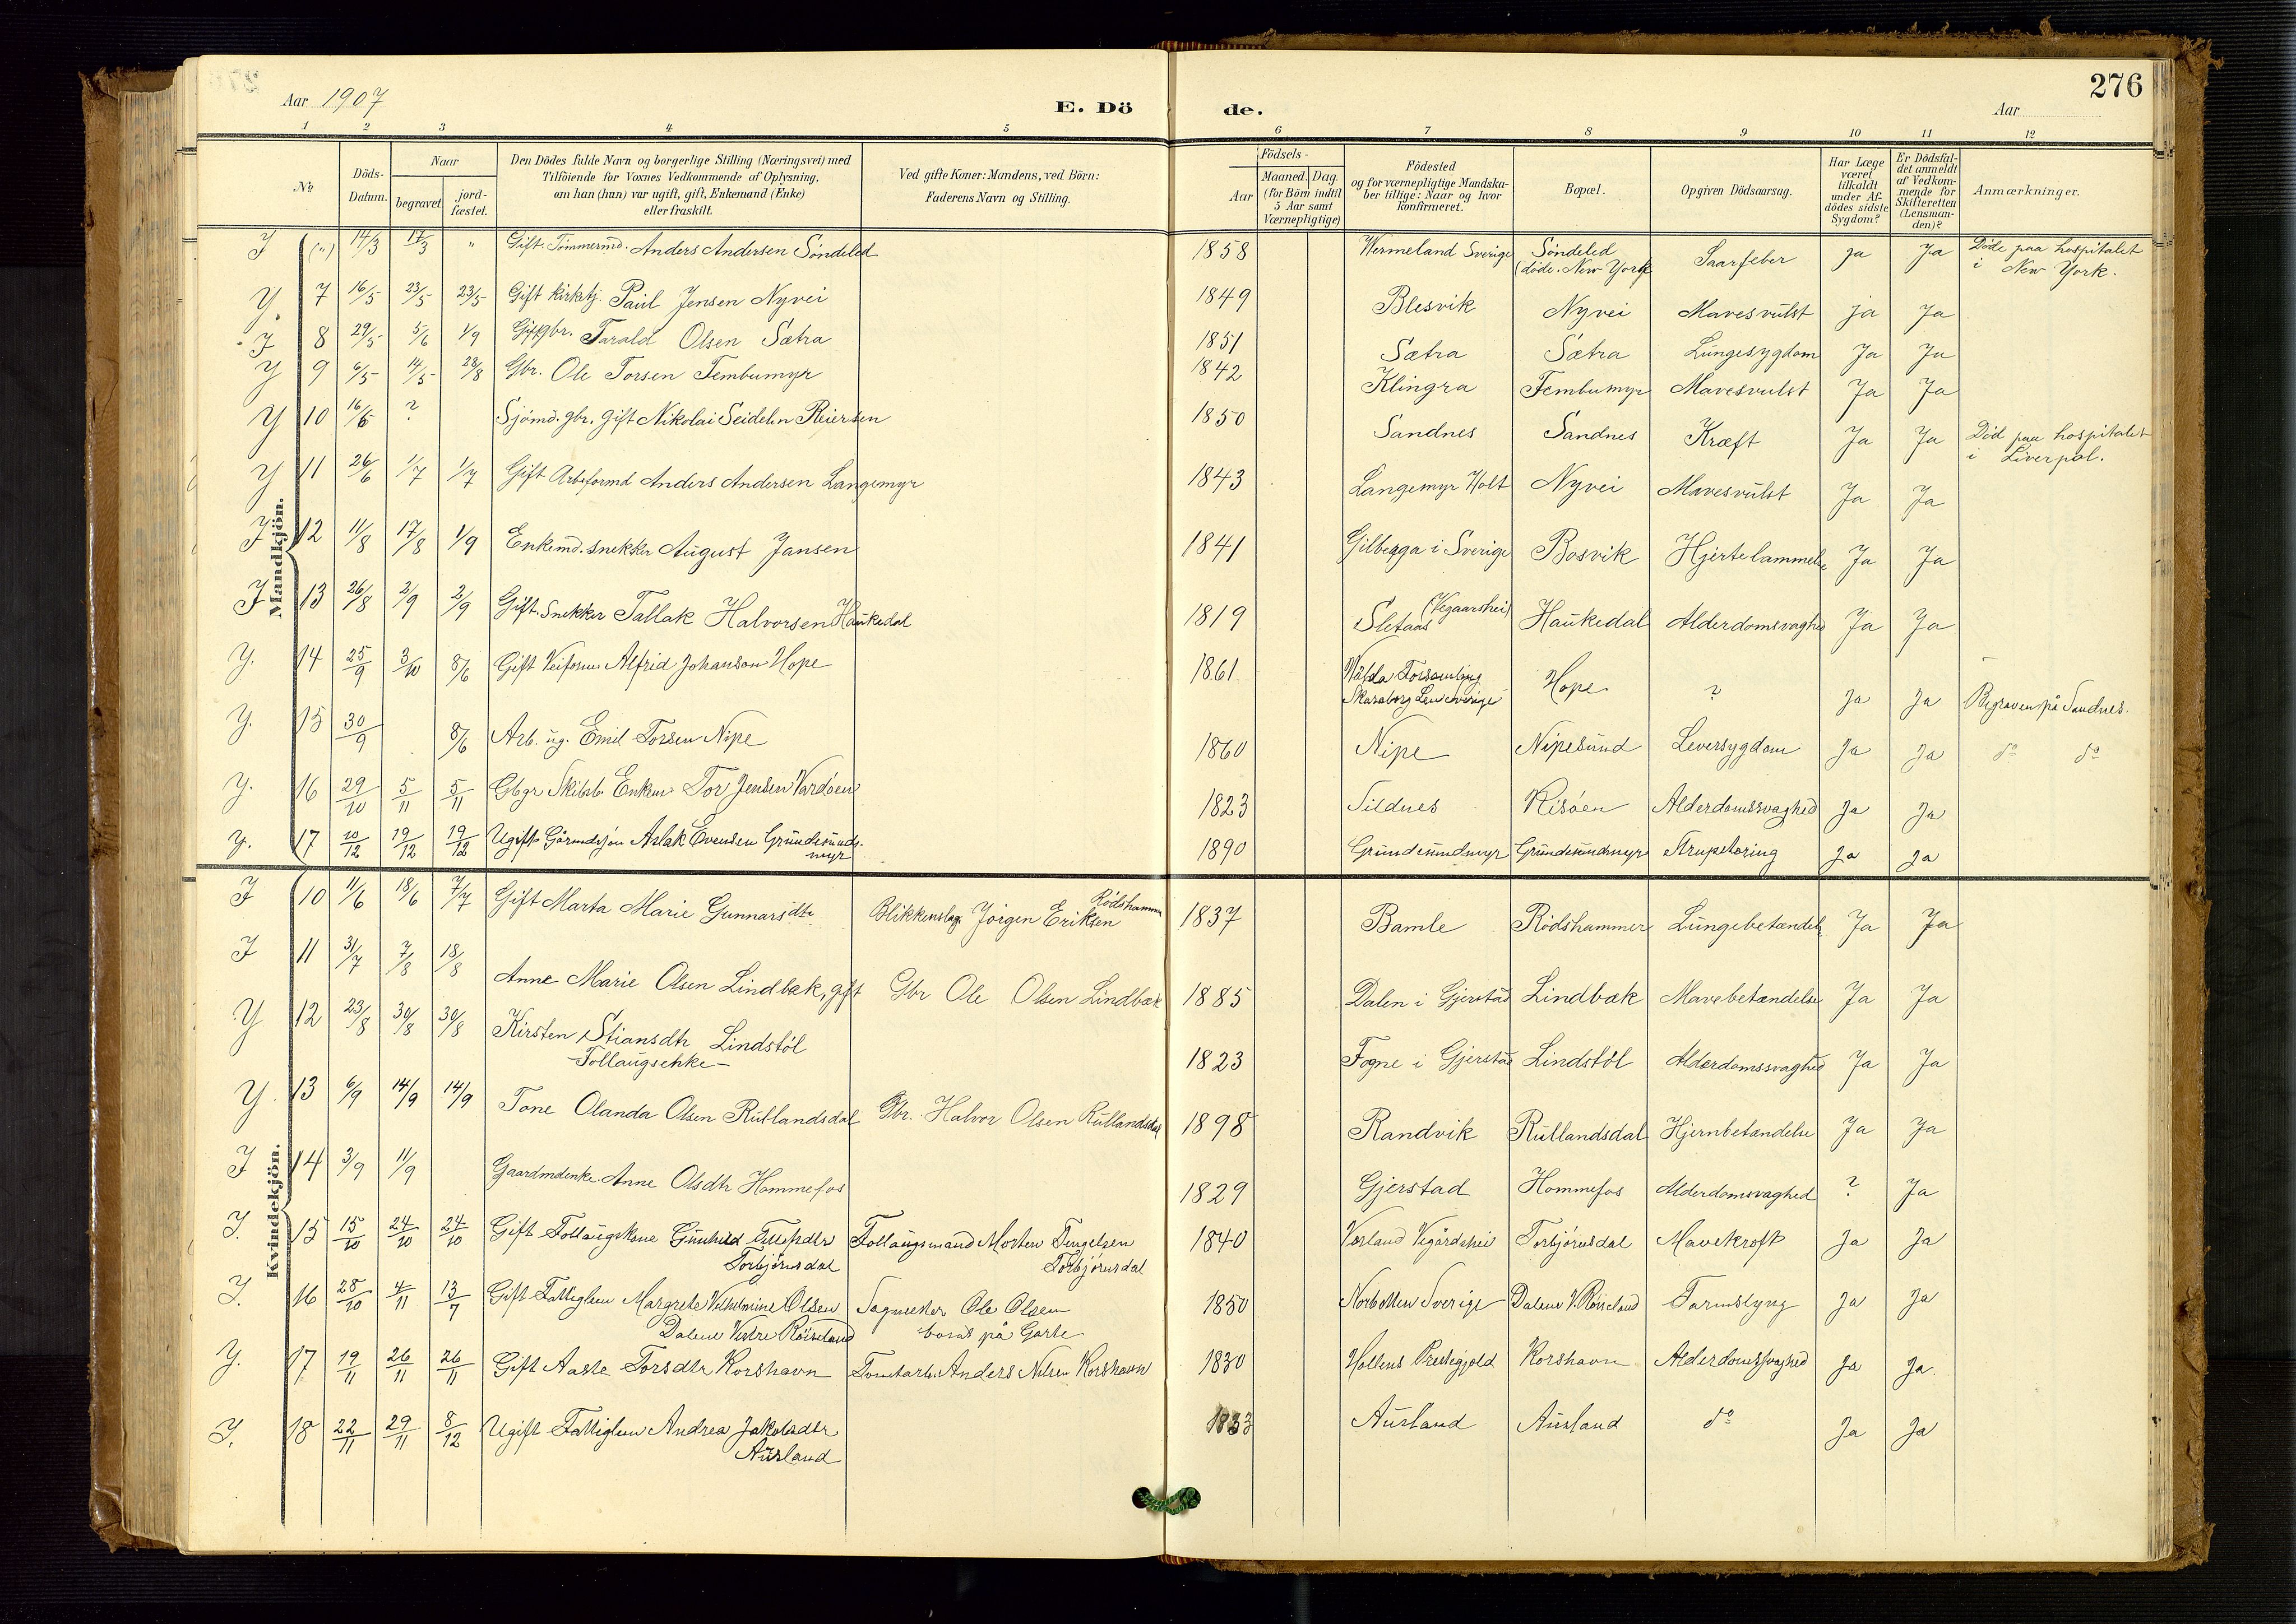 276
Aar 1907
E. Dö de.
Aar
1 2 3 4 5 6 7 8 9 10 11 12
No
Döds-Datum.
Naar
begravet
jord-fæstet.
Den Dödes fulde Navn og borgerlige Stilling (Næringsvei) med
Tilföiende for Voxnes Vedkommende af Oplysning,
om han (hun) var ugift, gift, Enkemand (Enke)
eller fraskilt.
Ved gifte Koner: Mandens, ved Börn:
Faderens Navn og Stilling.
Födsels-
Aar
Maaned. Dag.
(for Börn indtil
5 Aar samt
Værnepligtige)
Födested
og for værnepligtige Mandska-
ber tillige: Naar og hvor
konfirmeret.
Bopæl.
Opgiven Dödsaarsag.
Har Læge
været
tilkaldt
under Af-
dödes sidste
Sygdom?
Er Dödsfal-
det anmeldt
af Vedkom-
mende for
Skifteretten
(Lensman-
den)?
Anmærkninger.
Mandkjön.
J (") 14/3 17/3 " Gift. Tömmermd. Anders Andersen Söndeled 1858 Wermeland Sverige Söndeled (döde. New York Saarfeber Ja Ja Döde paa hospitalet i New York.
Y. 7 16/5 23/5 23/5 Gift kirketj. Paul Jensen Nyvei 1849 Blesvik Nyvei Mavesvulst Ja Ja
J 8 29/5 5/6 1/9 Gift gbr. Tarald Olsen Sætra 1851 Sætra Sætra Lungesygdom Ja Ja
Y 9 6/5 14/5 28/8 Gbr. Ole Torsen Fembumyr 1842 Klingra Fembumyr Mavesvulst Ja Ja
Y 10 16/6 ? Sjömd. gbr. gift Nikolai Seidelin Reiersen 1850 Sandnes Sandnes Kræft Ja Ja Död paa hospitalet i Liverpol.
Y 11 26/6 1/7 1/7 Gift Arbeformd Anders Andersen Langemyr 1843 Langemyr Holt Nyvei Mavesvulst Ja Ja
J 12 11/8 17/8 1/9 Enkemd. snekker August Jansen 1841 Gilberga i Sverige Bosvik Hjertelammelse Ja Ja
J 13 26/8 2/9 2/9 Gift. Snekker Tallak Halvorsen Haukedal 1819 Sletaas (Vegaarshei) Haukedal Alderdomsvaghed Ja Ja
Y. 14 25/9 3/10 8/6 Gift Veiform Alfrid Johanson Hope 1861 Skaraborg Len Sverige Hope ? Ja Ja Begraven på Sandnes.
Y. 15 30/9 8/6 Arb. ug. Emil Torsen Nipe 1860 Nipe Nipesund Leversygdom Ja Ja do do
Y. 16 29/10 5/11 5/11 Gbgr Enkem Tor Jensen Vardöen 1823 Sildnes Risöen Alderdomssvaghed Ja Ja
Y. 17 10/12 19/12 19/12 Ugift Gårmdsjön Aslak Evensen Grundesunds-
myr 1890 Grundesundmyr Grundesundmyr Strupetæring Ja Ja
Kvindekjön.
J 10 11/6 18/6 7/7 Gift Marta Marie Gunnarsdtr Blikkenslag. Jörgen Eriksen Rödshammer 1837 Bamle Rödshammer Lungebetændels Ja Ja
J 11 31/7 7/8 18/8 Anne Marie Olsen Lindbæk, gift Gbr Ole Olsen Lindbæk 1885 Dalen i Gjerstad Lindbæk Mavebetændelse Ja Ja
Y 12 23/8 30/8 30/8 Kirsten Stiansdtr Lindstöl
-Follaugsenke- 1823 Fogne i Gjerstad Lindstöl Alderdomssvaghed Ja Ja
Y. 13 6/9 14/9 14/9 Tone Olanda Olsen Rutlandsdal Gbr. Halvor Olsen Rutlandsdal 1898 Randvik Rutlandsdal Hjernbetændelse Ja Ja
J 14 3/9 11/9 Gaardmdenke. Anne Olsdtr Hommefos 1829 Gjerstad Hommefos Alderdomsvaghed ? Ja
J. 15 15/10 24/10 24/10 Gift Follaugskone Gunhild
Torbjörnsdal Follaugsmand Morten Tengelsen
Torbjörnsdal 1840 Vigårdshei Torbjörnsdal Mavekræft Ja Ja
J. 16 28/10 4/11 13/7 Gift Fattiglem Margrete Vilhelmine Olsen
Dalene Vestre Röiseland Sagmester Ole Olsen
borat på Garte 1850 Norbotten Sverige Dalene V. Röiseland Tarmslyng Ja Ja
Y. 17 19/11 26/11 26/11 Gift Aaste Torsdtr Korshavn Tomtarb. Anders Nilsen Korshavn 1830 Holtens Prestegjeld Korshavn Alderdomssvaghed Ja Ja.
J. 18 22/11 29/11 8/12 Ugift Fattiglem Andrea Jakobsdtr
Ausland 1833 Ausland Ausland do Ja Ja